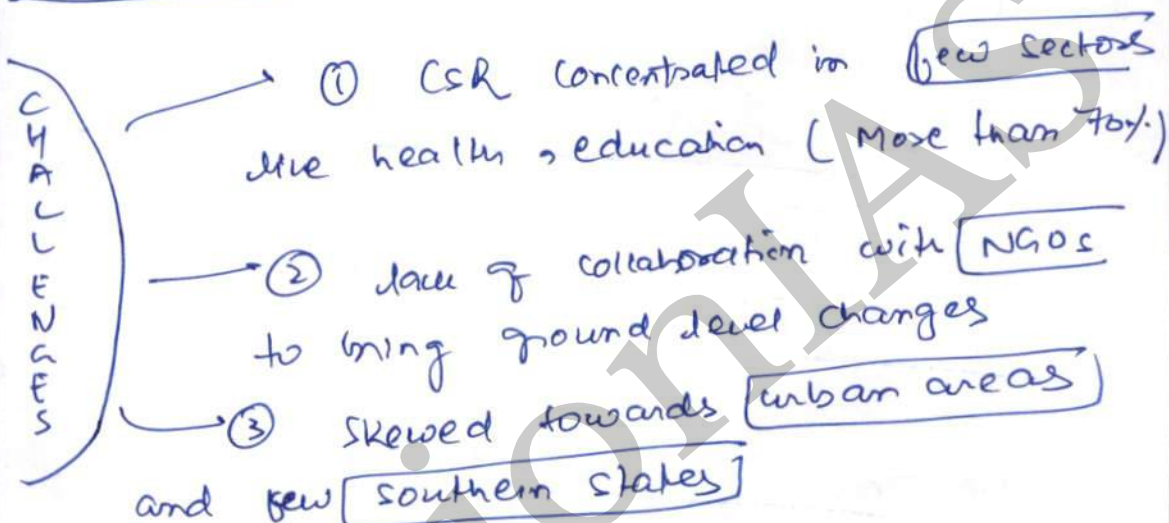 CHALLENGES
① CSR concentrated in few sectors
like health, education (More than 70%)
② lack of collaboration with NGOs
to bring ground level changes
③ skewed towards urban areas
and few southern states
ionIAS